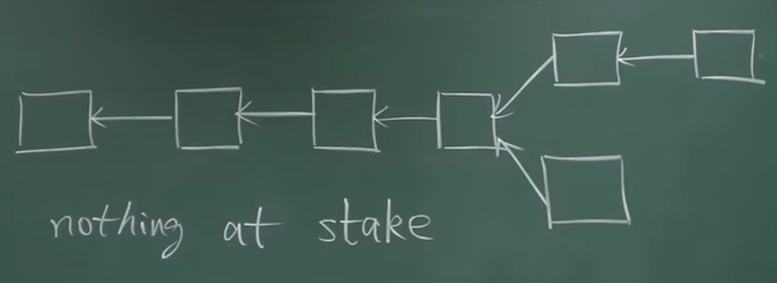 nothing at stake